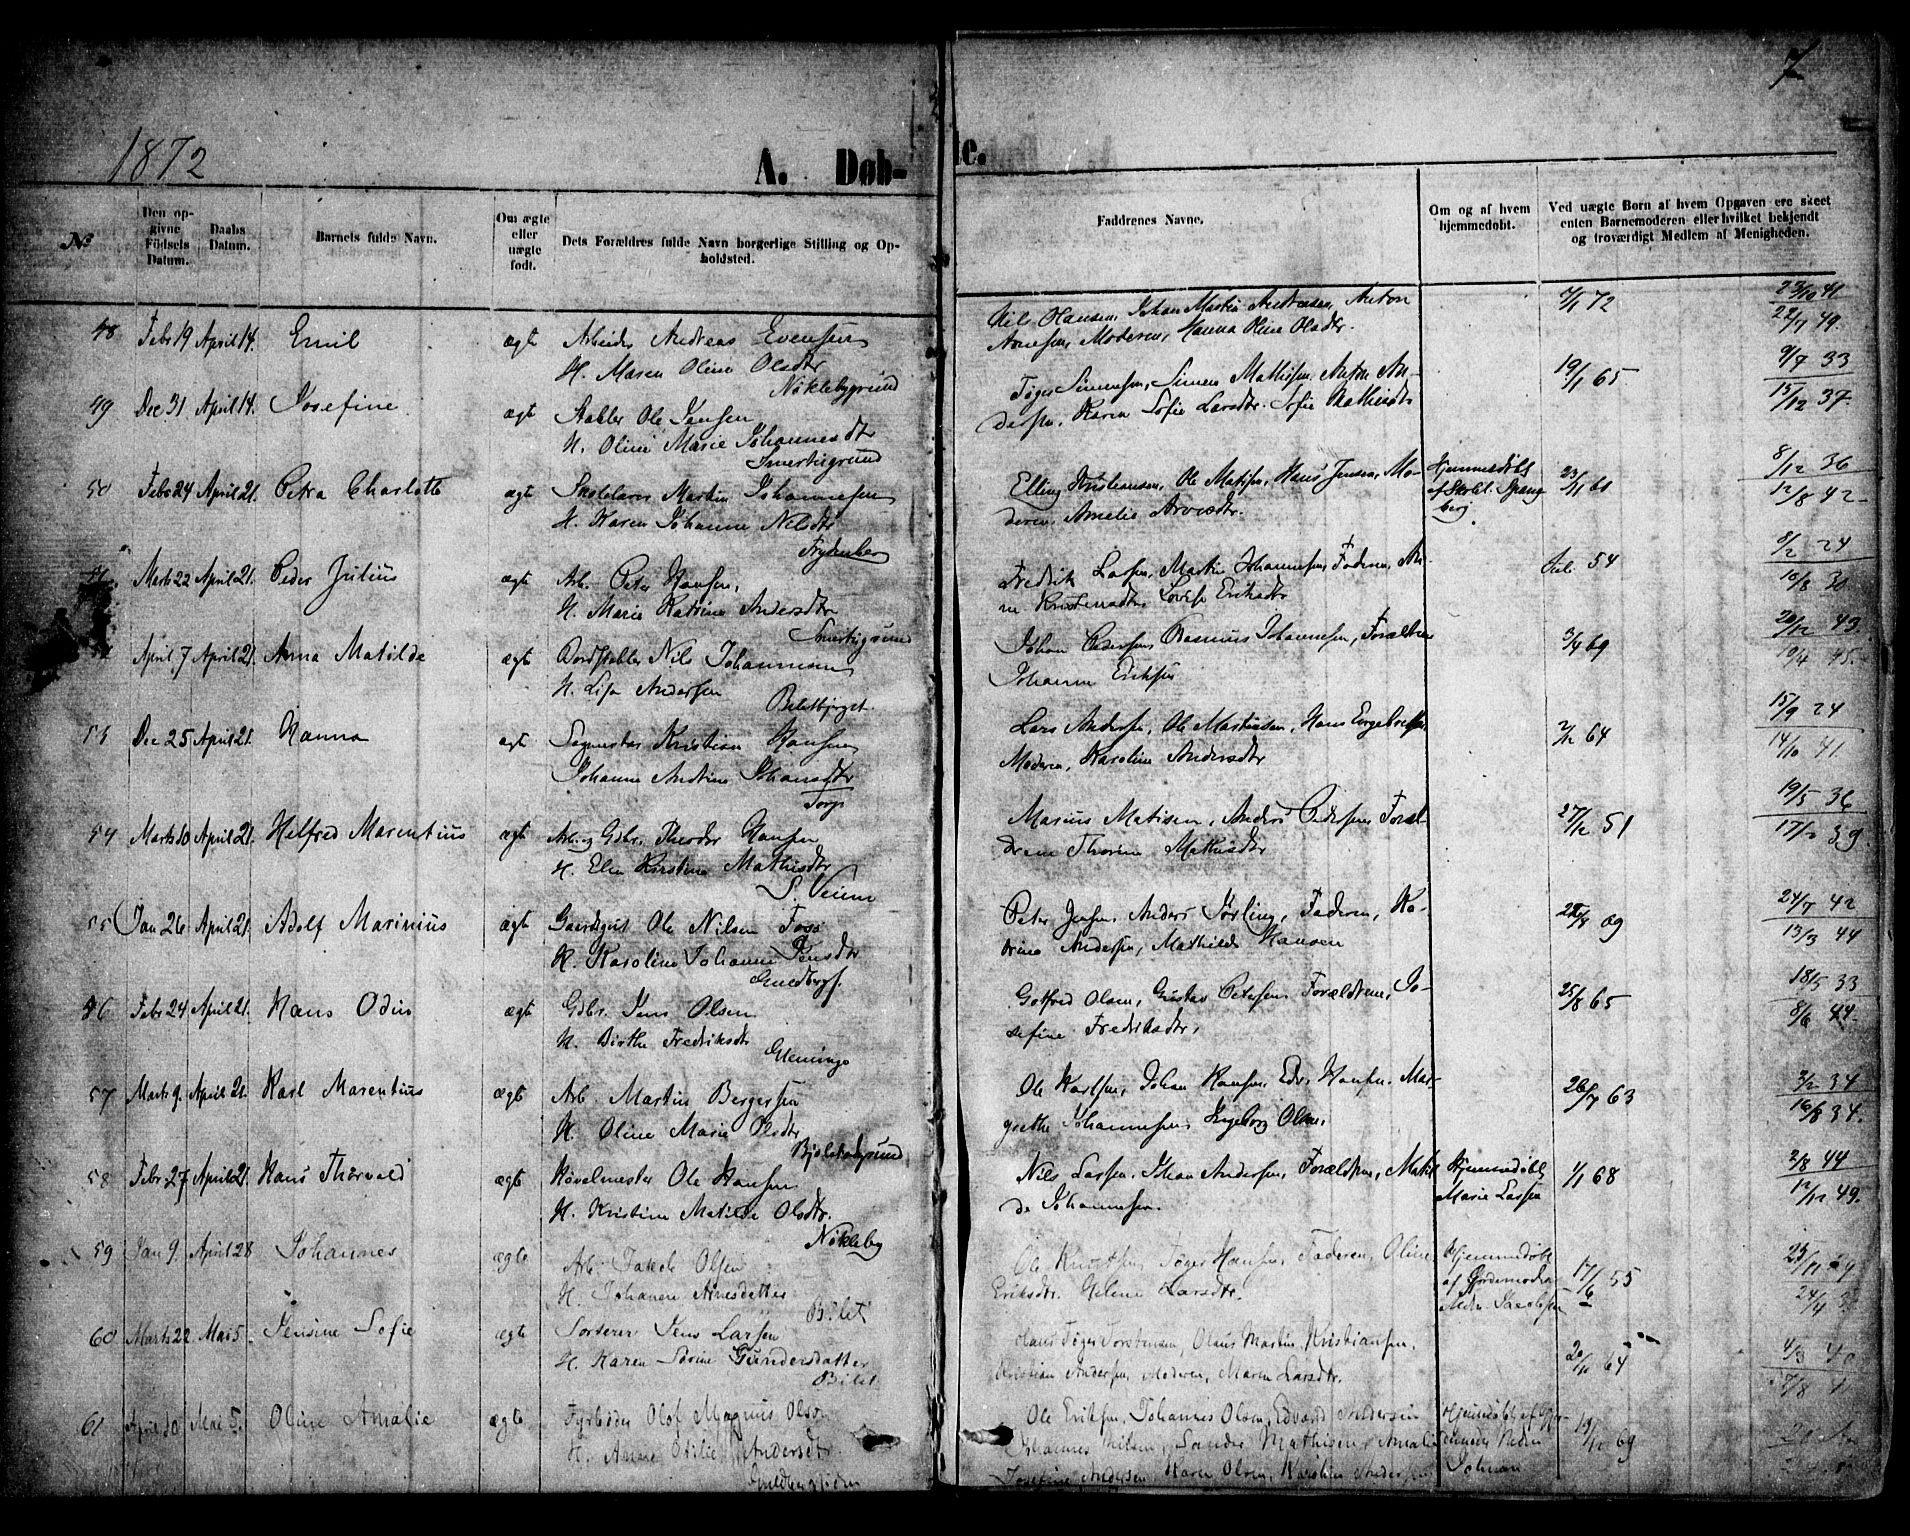 7
1872
A. Døb-
te.
№
Den op-
givne
Fødsels
Datum.
Daabs
Datum.
Barnets fulde Navn.
Om ægte
eller
uægte
født.
Dets Forældres fulde Navn borgerlige Stilling og Op-
holdsted.
Faddrenes Navne.
Om og af hvem
hjemmedøbt.
Ved uægte Børn af hvem Opgaven ere skeet
enten Barnemoderen eller hvilket bekjendt
og troværdigt Medlem af Menigheden.
48 Febr 19 April 14. Emil ægte Arbeider Andreas Evensen
H. Maren Oline Olsdtr
Noklebygrund
Nils Hansen, Johan Martin Andreasen, Anton
Arnesen, Moderen, Hanna Oline Olsdtr.
7/1 72
23/10 41
22/7 49.
49 Dec 31 April 14. Josefine ægte Stabler Ole Jensen
H. Oline Marie Johannesdtr
Smertugrund
Tøger Simensen, Simen Mathisen, Anton An-
dersen, Karen Sofie Larsdtr. Sofie Mathisdtr
19/1 65
9/7 33
15/12 37.
50 Febr 24 April 21. Petra Charlotte ægte Skolelærer Martin Johannesen
H. Karen Johanne Nilsdtr
Frydenberg
Elling Kristiansen, Ole Matisen, Hans Jensen, Mo-
deren, Amalie Arvesdtr.
Hjemmedøbt
af Skolel. Spang
berg
23/11 61
8/12 36
12/8 42
Marts 22 April 21. Peder Julius ægte Arb. Peter Hansen,
H. Marie Katrine Andersdtr
Smertugrund
Fredrik Larsen, Martin Johannesen, Faderen, An-
ne Kristensdtr, Lovise Eriksdtr
Jul. 54
8/2 24
10/8 30
April 7 April 21. Anna Matilde ægte Bordstabler Nils Johannesen
H. Lisa Andersen
Biletbjerget
Johan Pedersen, Rasmus Johannesen, Forældrene
Johanne Eriksen
3/9 69
20/12 43.
19/4 45.
53 Dec 25 April 21. Hanna ægt Sagmester Kristian Hansen
Johanne Andrine Johansdtr
Torp
Lars Andersen, Ole Martinsen, Hans Engebretsen,
Moderen, Karoline Andersdtr
64
15/9 24
14/10 41
54 Marts 10 April 21. Helfred Marentius ægte Arb. og Gdbr. Theodor Hansen
H. Elen Kirstine Mathisdtr
S. Veium
Marius Matisen, Anders Pedersen, Foræl-
drene Thorine Mathisdtr
27/12 51
19/5 36
17/2 39
55 Jan 26 April 21. Adolf Marinius ægte Gaardgut Ole Nilsen Foss
H. Karoline Johanne Jensdtr
Guldbergs.
Peter Jensen, Anders Sørling, Faderen, Ka-
trine Andersen, Mathilde Hansen
69
24/7 42
13/3 44
56 Febr 24 April 21. Hans Odin ægte Gdbr. Jens Olsen
H. Birthe Fredriksdtr
Glemminge
Gotfred Olsen, Gustav Petersen, Forældrene, Jo-
sefine Fredriksdtr,
25/8 65
18/5 33
8/6 44.
57 Marts 9. April 21. Karl Marentius ægte Arb. Martin Bergersen
H. Oline Marie Olsdtr
Bjølstadgrund
Ole Karlsen, Johan Hansen, Edv. Hansen, Mar-
grethe Johannesen, Ingeborg Olsen,
26/7 63
3/2 34
16/8 34.
58 Febr 27 April 21. Hans Thorvald ægte Høvelmester Ole Hansen
H. Kristine Matilde Olsdtr.
Nokleby
Nils Larsen, Johan Andersen, Forældrene, Matil
de Johannesen.
Hjemmedøbt
Marie Larsen
1/1 68
2/8 44
12/12 49.
59 Jan 9. April 28 Johannes ægte Arb. Jakob Olsen
H. Johanne Arnesdatter
Bilet
Ole Knutsen, Tøger Hansen, Faderen, Oline
Eriksdtr. Helene Larsdtr.
Hjemmedøbt
af Jordemoder
Jacobsen
17/6 55
60 Marts 22 Mai 5. Jensine Sofie ægte Sorterer Jens Larsen
H. Karen Sørine Gundersdatter
Bilet
Hans Tøger Torstensen, Olaus Martin Kristiansen,
Kristian Andersen, Moderen, Maren Larsdtr.
20/11 64
4/3 40
61 April 10 Mai 5. Oline Amalie ægte Fyrbøder Olof Magnus Olsen
H. Anne Otilie Andersdtr.
Ole Eriksen, Johannes Olsen, Edvard Andersen
Johannes Nilsen, Sander Mathisen, Amalie
Josefine Andersen Karen Olsen, Karoline Andersen
Hjemmedøbt af
Johnsen
19/12 69